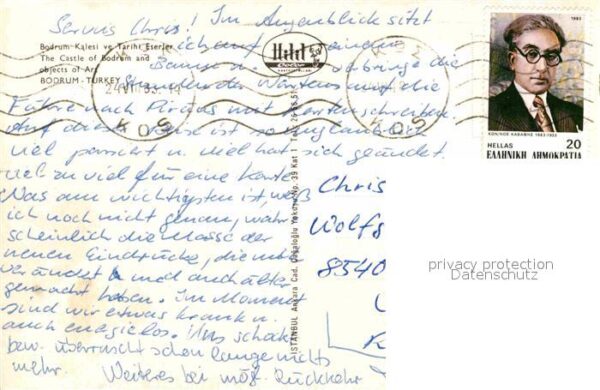 Servus Chris! Im Augenblick sitzt
ich auf einem
Bodrum-Kalesi ve Tarihi Eserler
The Castle of Bodrum and
objects of Art
BODRUM - TURKEY
verbringe die
Stunden des Wartens auf die
Fähre nach Piräus mit Kartenschreiben
Auf dieser Reise ist so unglaublich
viel passiert u. viel hat sich geändert.
viel zu viel für eine Karte
Was am wichtigsten ist, weiß
ich noch nicht genau, wahr-
scheinlich die Masse der
neuen Eindrücke, die mich
verändert u. und auch älter
gemacht haben. Im Moment
sind wir etwas krank u.
auch energielos. Uns schockt
bzw. überrascht schon lange nichts
mehr. Weiteres bei mögl. Rückkehr
Hitit
Color
KOS
KOS
İSTANBUL Ankara Cad. No. 39 Kat 1
1983
ΚΩΝ/ΝΟΣ ΚΑΒΑΦΗΣ 1863-1933
HELLAS 20
ΕΛΛΗΝΙΚΗ ΔΗΜΟΚΡΑΤΙΑ
Chris
Wolfg
8540
privacy protection
Datenschutz